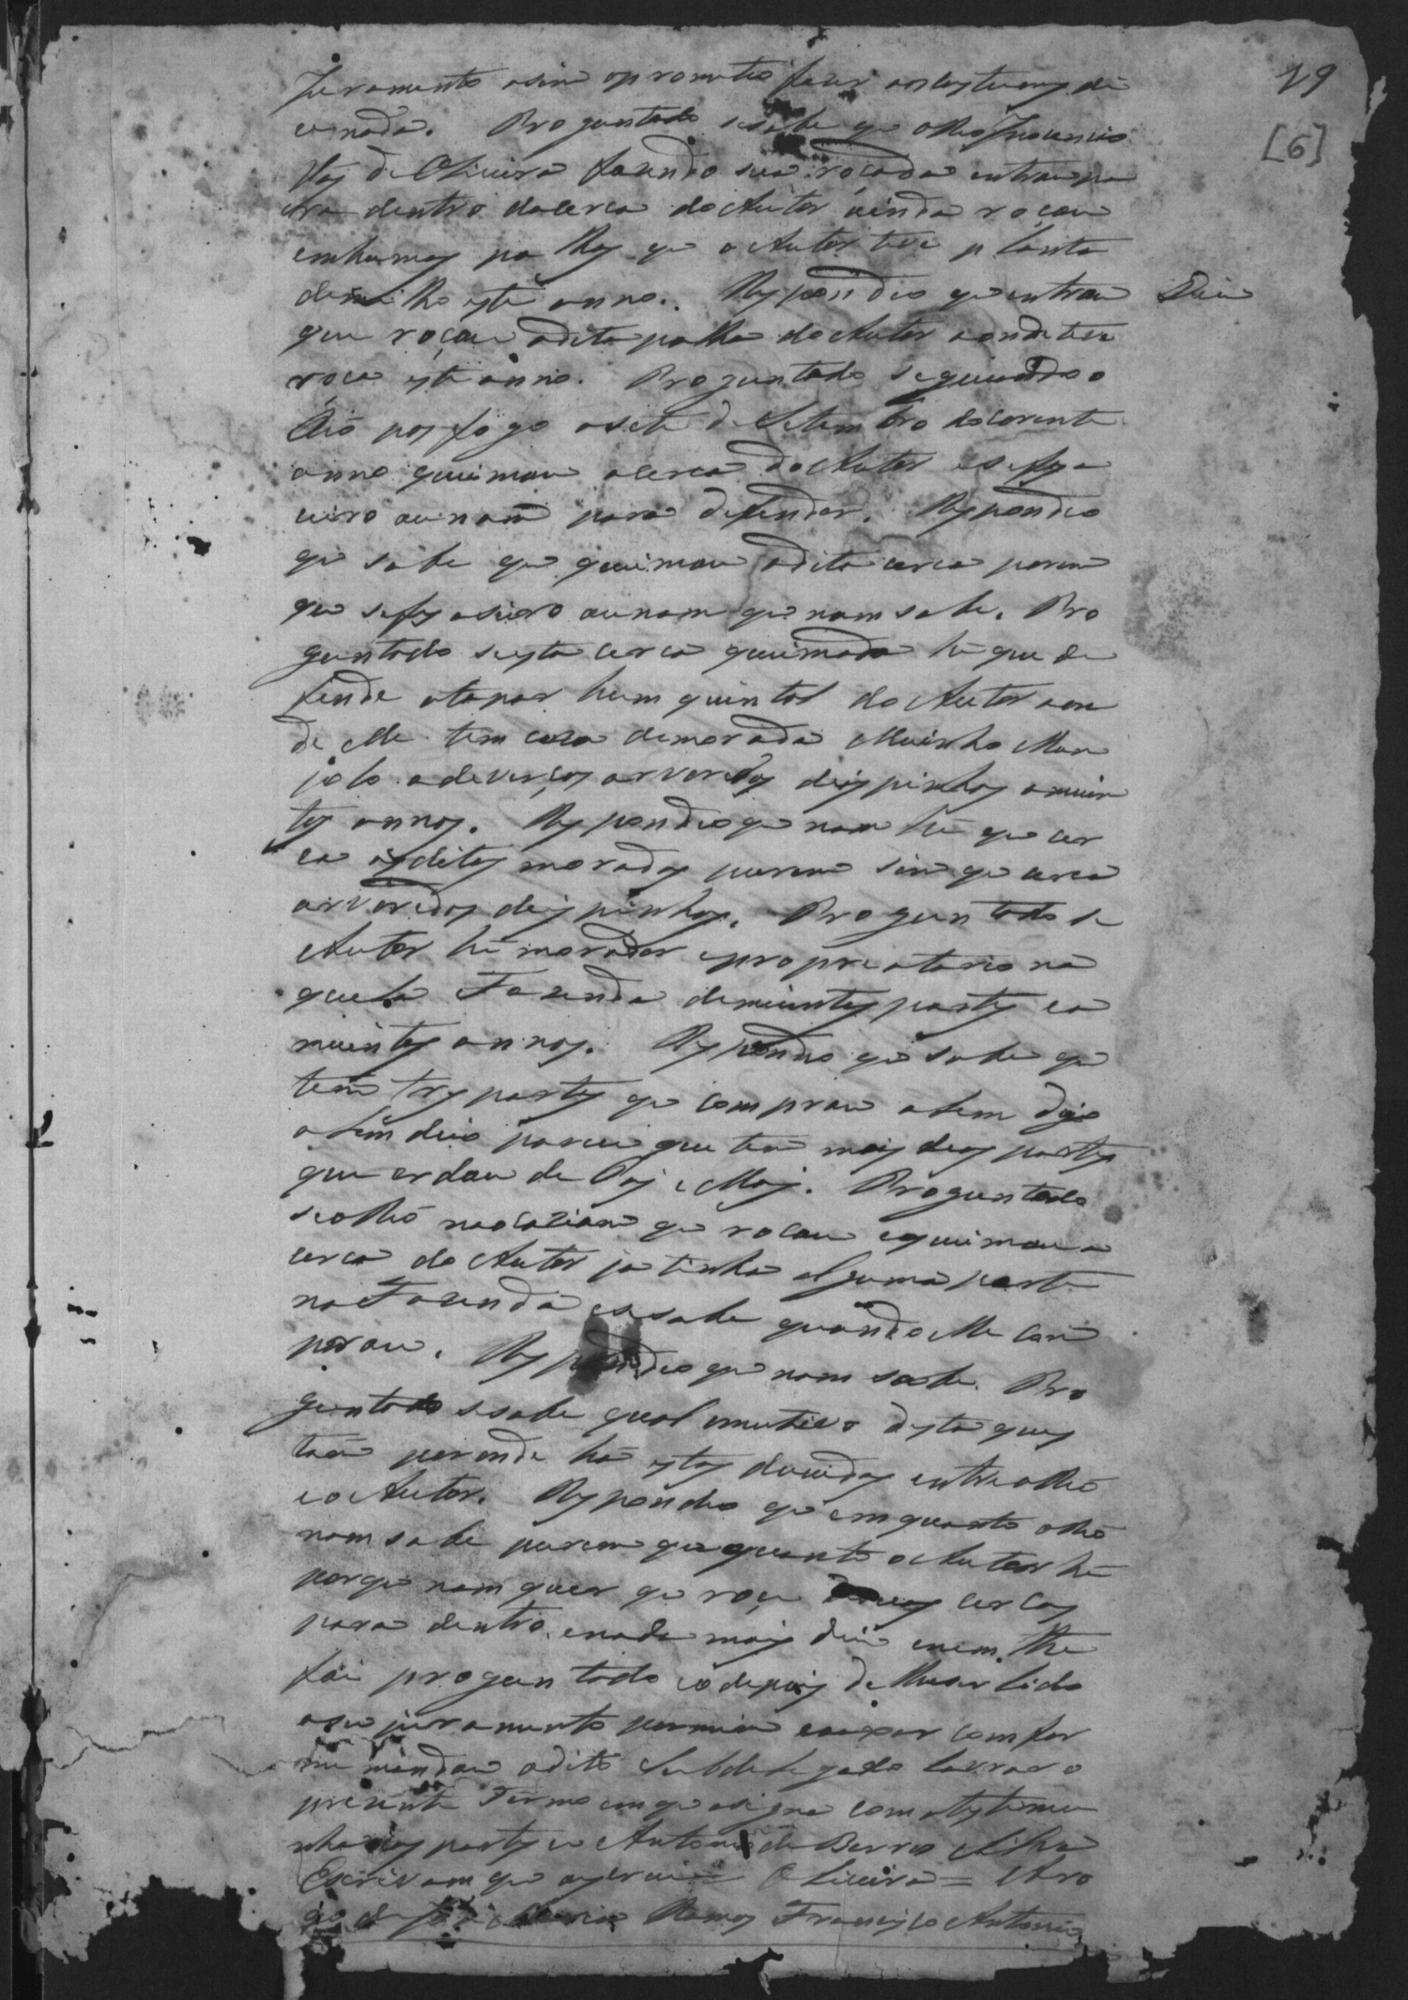 19
[6]
Juramento asim oprometeo fazer
carada. Proguntado se sabe que o Reo Inocencio
Vas de Oliveira fazendo sua roçada entrou pa
ra dentro da cerca do Autor ainda roçou
emhumas palhas que o Autor teve planta
de milho este anno. Respondeo que entrou digo
que roçou adita palha do Autor aonde teve
roça este anno. Proguntado se quando o
Reo pos fogo a sete de Setembro do corente
anno queimou a cerca do Autor e se fes a
ceiro ou nam para defender. Respondeo
que sabe que queimou adita cerca porem
que se fes aseiro ou nam que nam sabe. Pro
guntado se esta cerca queimada hé que de
fende atapar hum quintal do Autor aon
de elle tem casa de morada Moinho Mon
jolo e de verços arvoredos despinhos a muin
tos annos. Respondeo que nam hé que cer
ca as ditas moradas purem sim que cerca
arvoredos despinhos. Proguntado se
Autor hé morador e propriatario na
quela Fazenda de muintas partes e a
muintos annos. Respondeo que sabe que
tem tres partes que comprou alem digo
alem diso parece que tem mais duas partes
que erdou de Pai e Mai. Proguntado
se o Reo naocaziam que roçou e queimou a
cerca do Autor ja tinha alguma parte
na Fazenda e se sabe quando elle com
prou. Respondeo que nam sabe. Pro
guntado se sabe qual o mutivo desta ques
tam peronde há estas duvidas entre o Reo
e o Autor. Respondeo que em quanto o Reo
nam sabe purem que quanto o Autor hé
porque nam quer que roçe das cercas
para dentro. e nada mais dice e nem lhe
foi proguntado e a depois de lhe ser lido
o seu juramento permim escrivam comfor
me mandou o dito Subdelegado lavrar o
prezente Termo em que asigna com a testemu
nha e as partes eu Antonio de Barros e Silva
Escrivam que o escrevi = Oliveira = Aro
go de Jose Maria Ramos Francisco Antonio